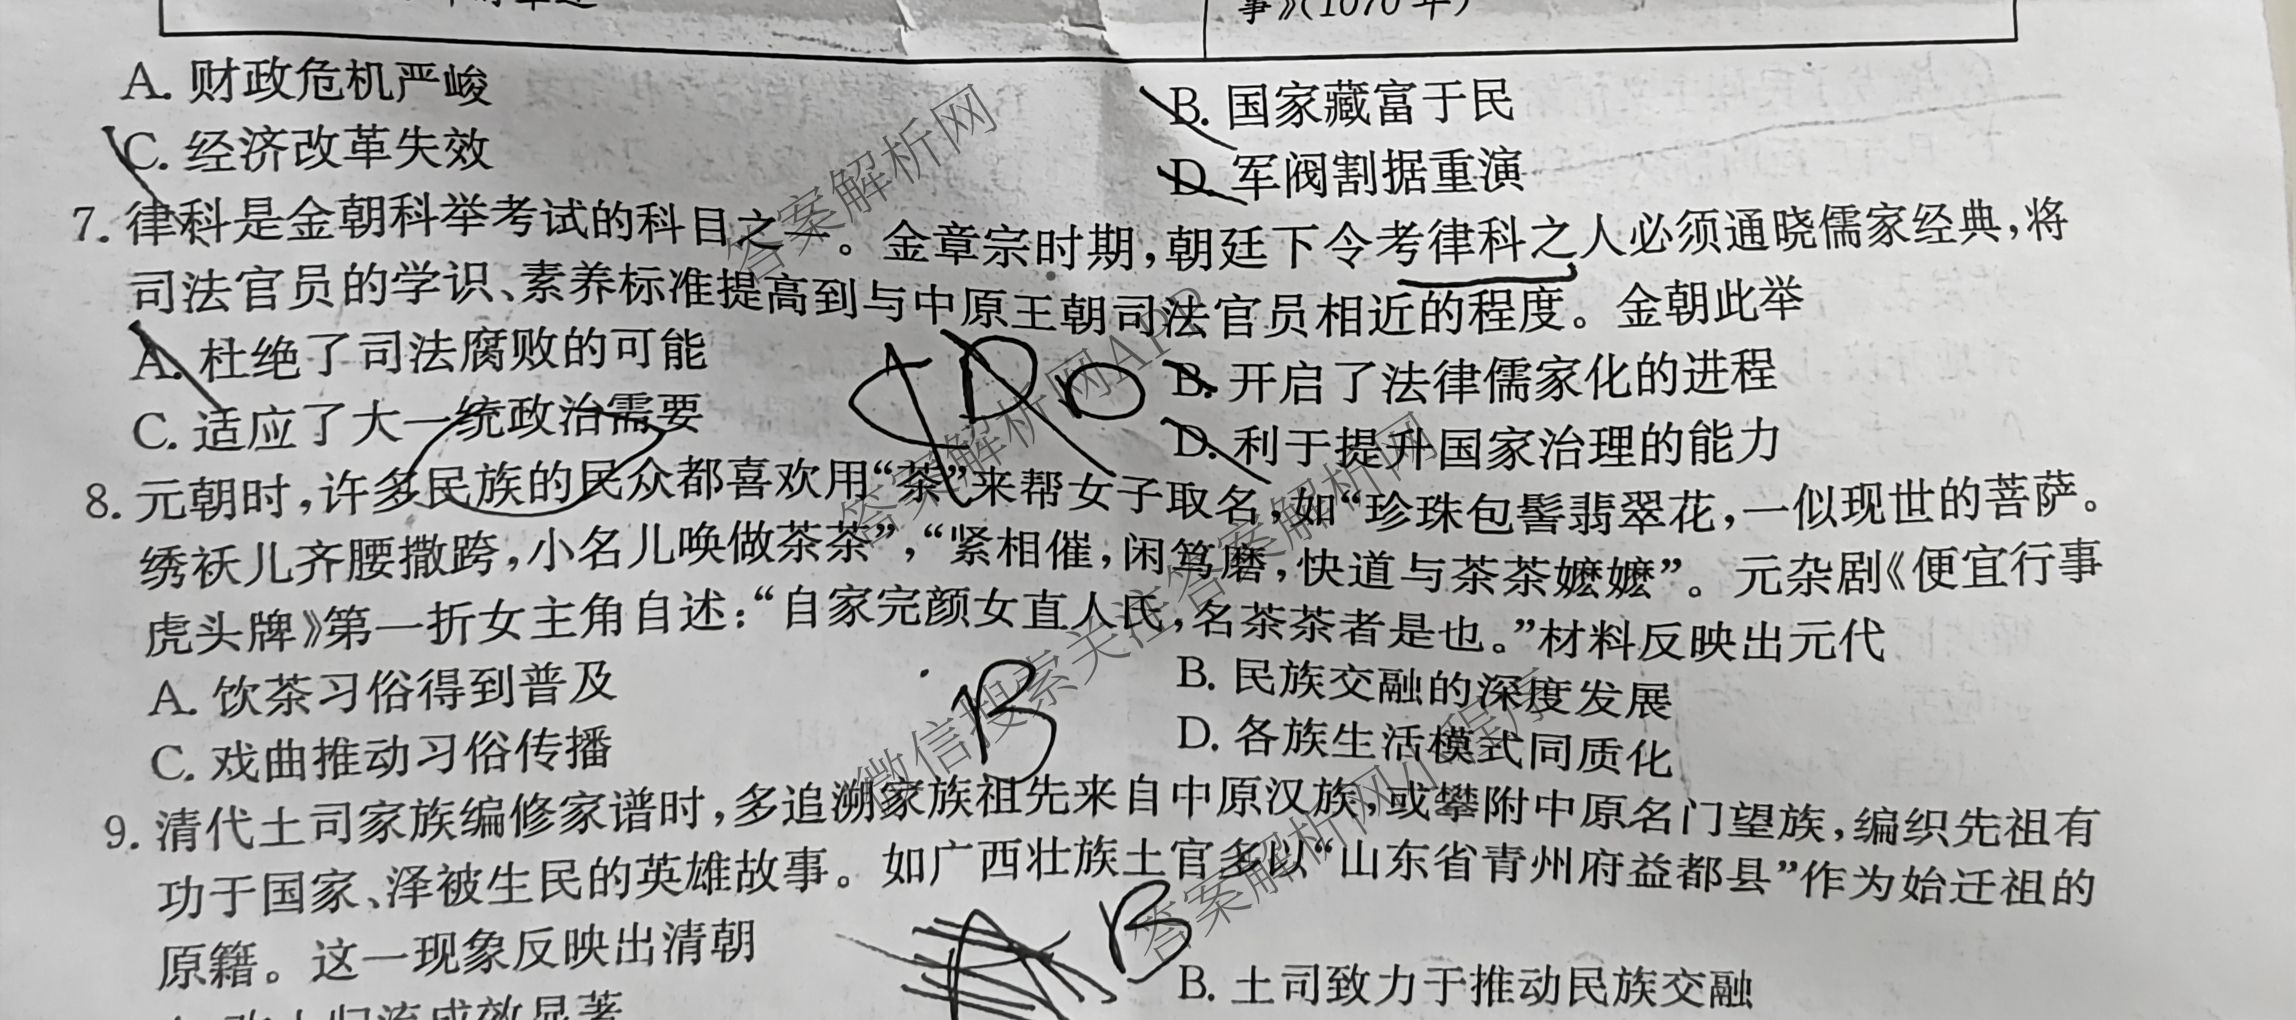 事》(1070年)
A. 财政危机严峻
B. 国家藏富于民
C. 经济改革失效
D. 军阀割据重演
7. 律科是金朝科举考试的科目之一。金章宗时期,朝廷下令考律科之人必须通晓儒家经典,将
司法官员的学识、素养标准提高到与中原王朝司法官员相近的程度。金朝此举
A. 杜绝了司法腐败的可能
B. 开启了法律儒家化的进程
C. 适应了大一统政治需要
D. 利于提升国家治理的能力
8. 元朝时,许多民族的民众都喜欢用“茶”来帮女子取名,如“珍珠包髻翡翠花,一似现世的菩萨。
绣袄儿齐腰撒跨,小名儿唤做茶茶”,“紧相催,闲笃磨,快道与茶茶嬷嬷”。元杂剧《便宜行事
虎头牌》第一折女主角自述:“自家完颜女直人民,名茶茶者是也。”材料反映出元代
A. 饮茶习俗得到普及
B. 民族交融的深度发展
C. 戏曲推动习俗传播
D. 各族生活模式同质化
B
9. 清代土司家族编修家谱时,多追溯家族祖先来自中原汉族,或攀附中原名门望族,编织先祖有
功于国家、泽被生民的英雄故事。如广西壮族土官多以“山东省青州府益都县”作为始迁祖的
原籍。这一现象反映出清朝
B
B. 土司致力于推动民族交融
答案解析网
答案解析网APP
答案解析网
微信搜索关注答案解析网
答案解析网小程序